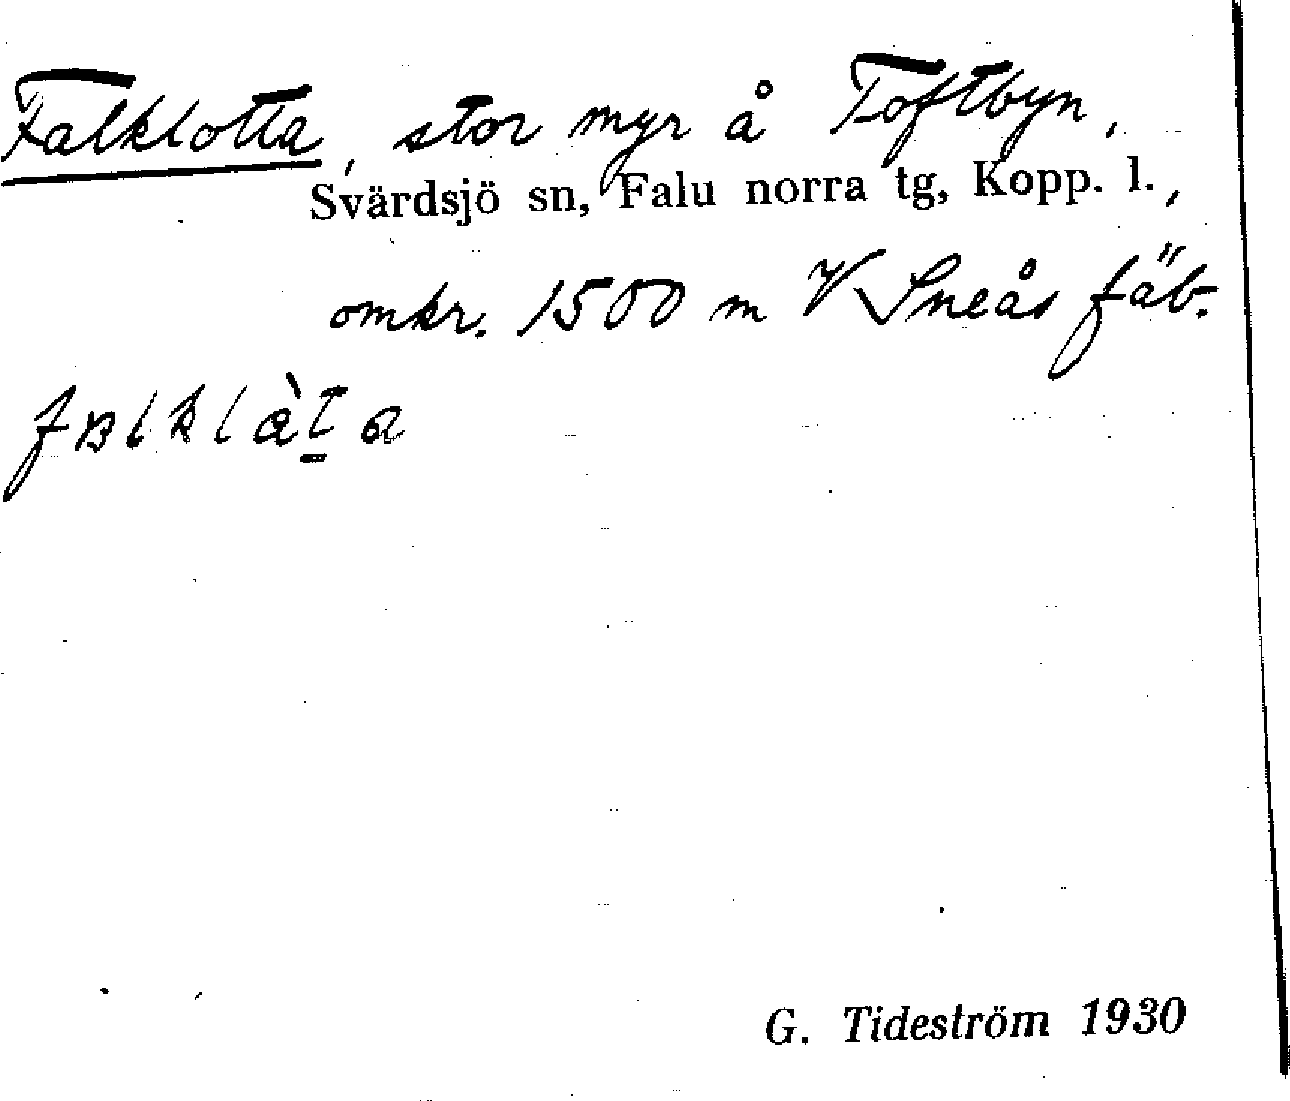 Falklotta, stor myr å Toftbyn,
Svärdsjö sn, Falu norra tg, Kopp. l.,
omkr. 1500 m V Sneås fäb.
G. Tideström 1930